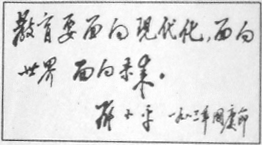 教育要面向现代化，面向
世界 面向未来。
邓小平 一九八三年国庆节